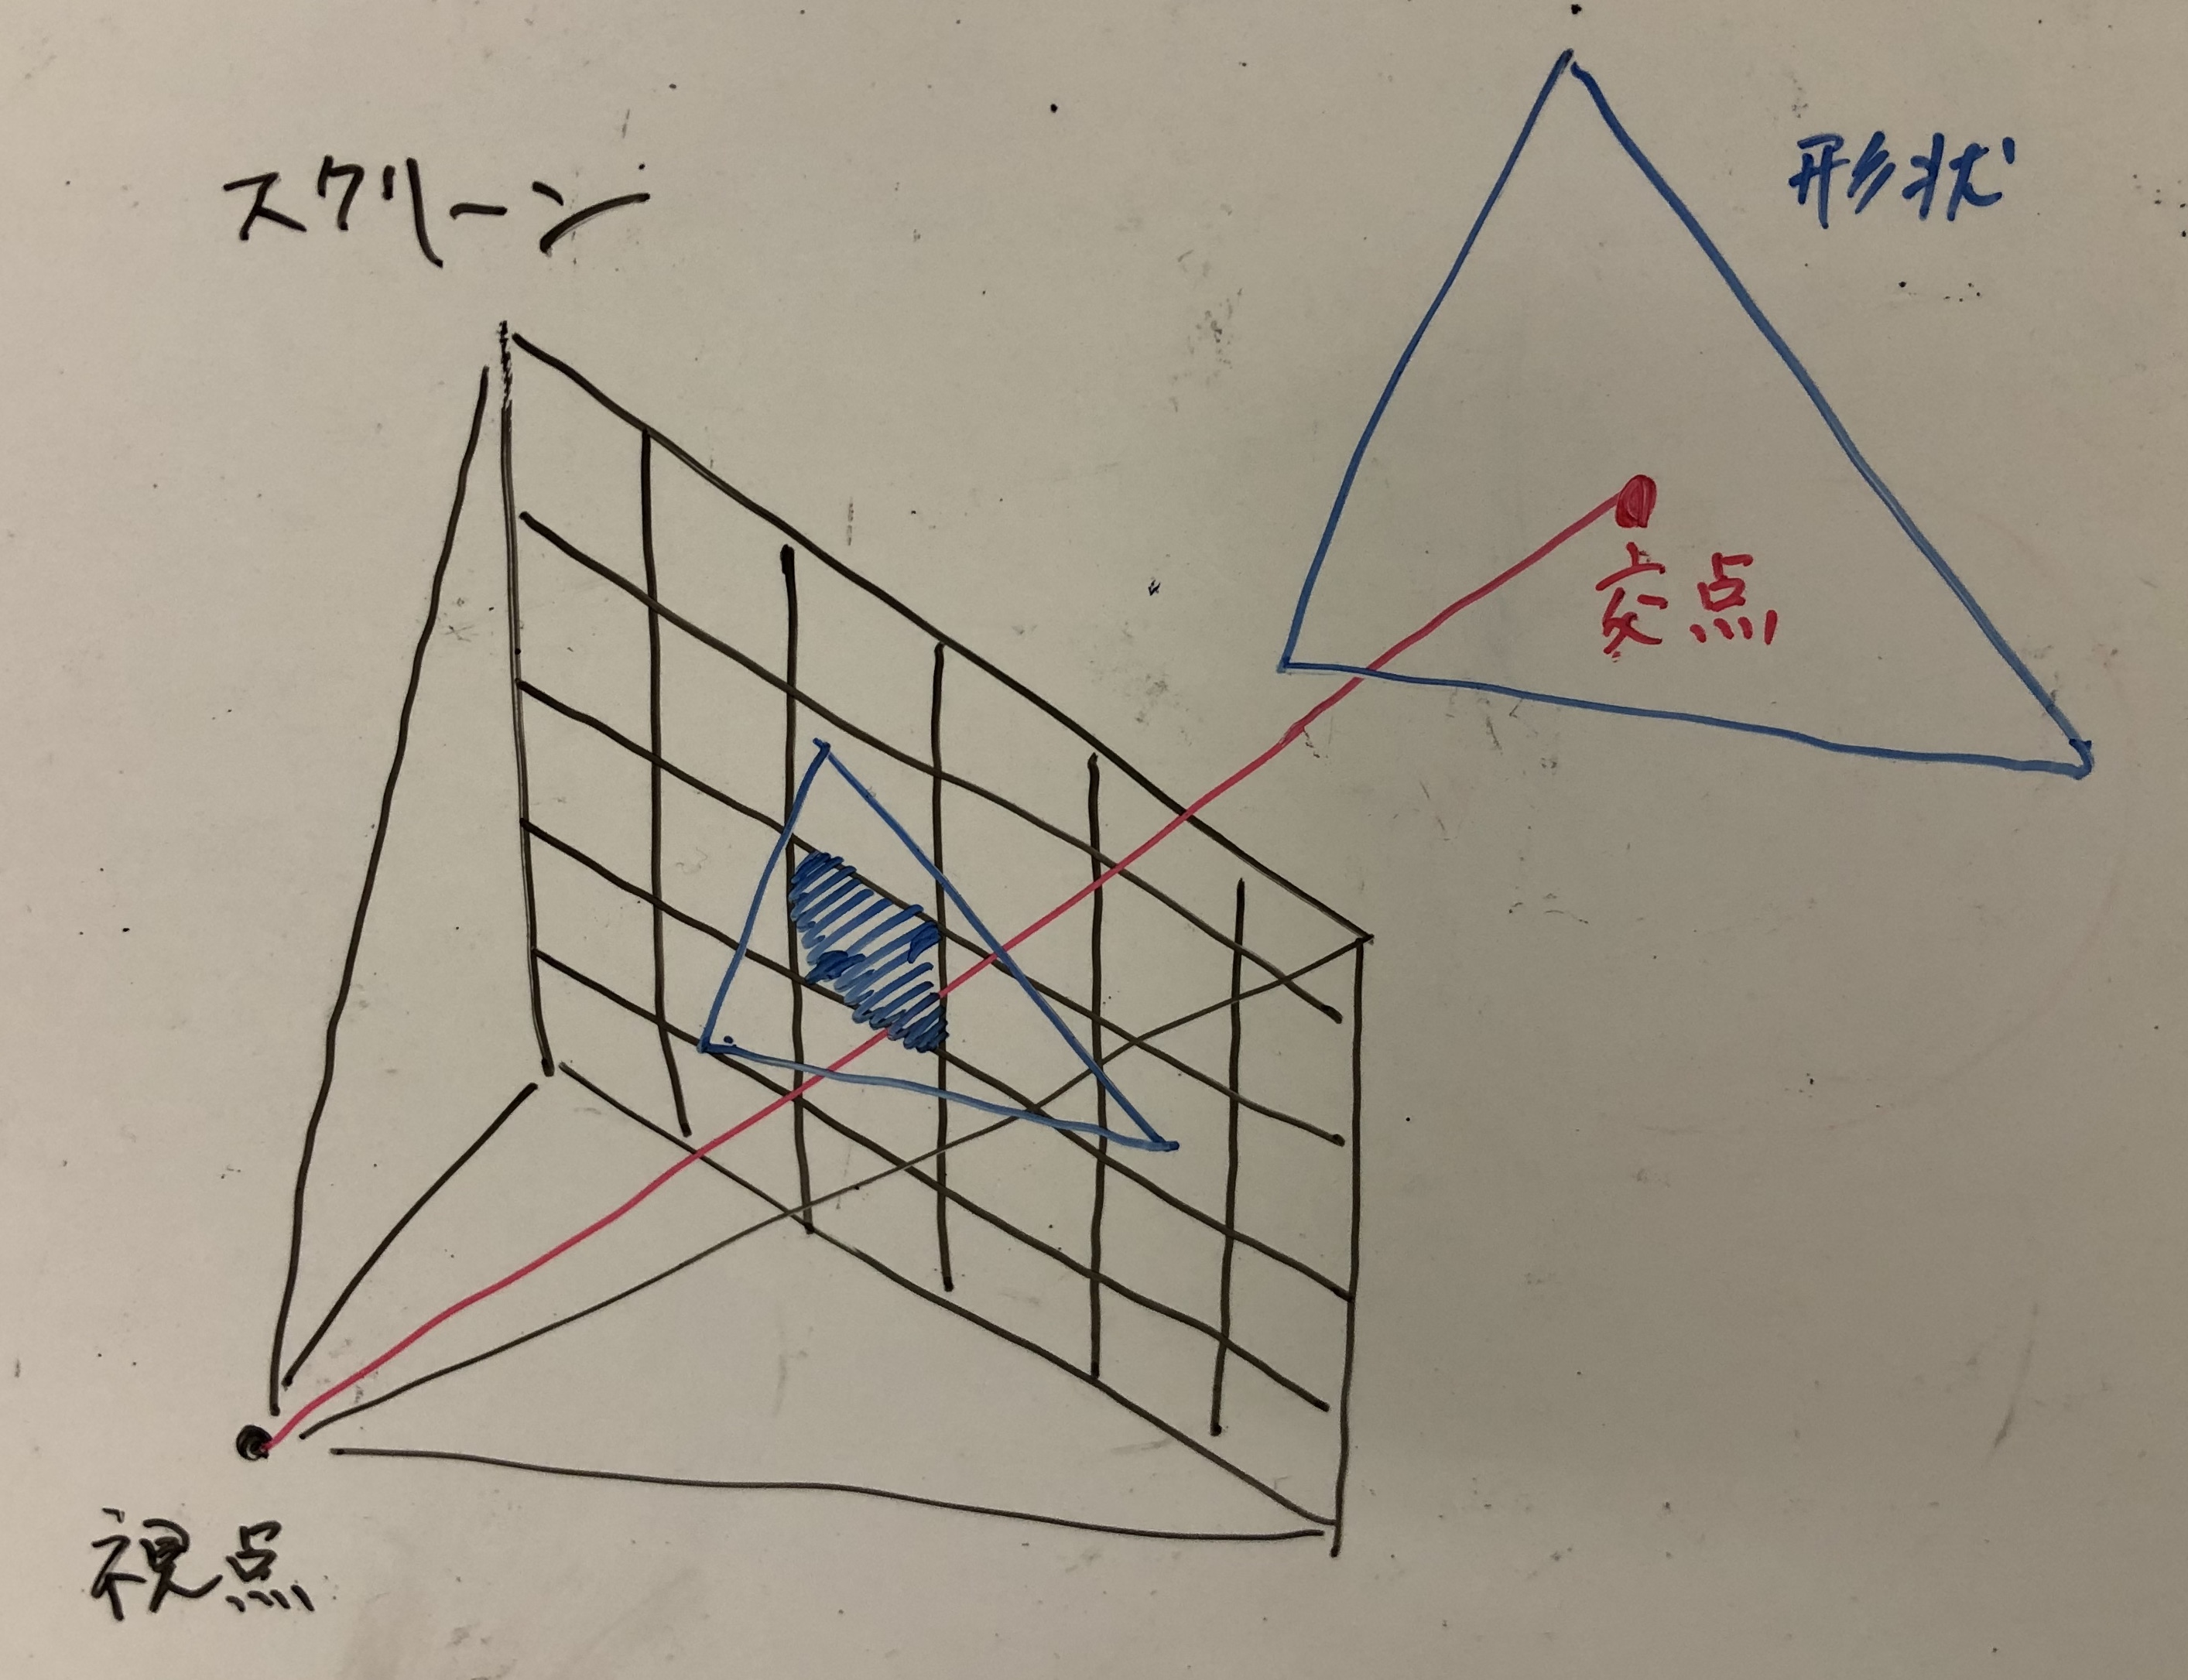 スクリーン
形状
交点
視点